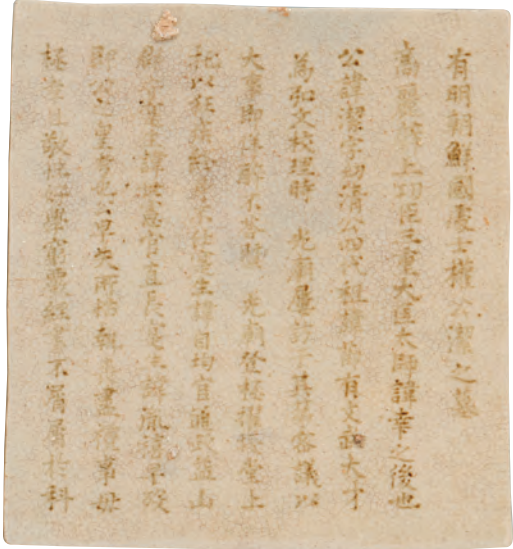 有明朝鮮國處士權公潔之墓
高麗 上功臣三重大匡太師諱幸之後也
公諱潔字幼清公四代祖諱節有文武大才
爲弘文校理時 光廟屢訪于其第密議以
大事即佯聾不答時 光廟登極擢授堂上
託以狂疾 不仕寔生諱自均官通政益山
郡守 諱 官直長寔生諱 早歿
即公皇考也公早失所怙朝 盡禮弟母
極 且敬性好學窮覃經書不屑屑於科